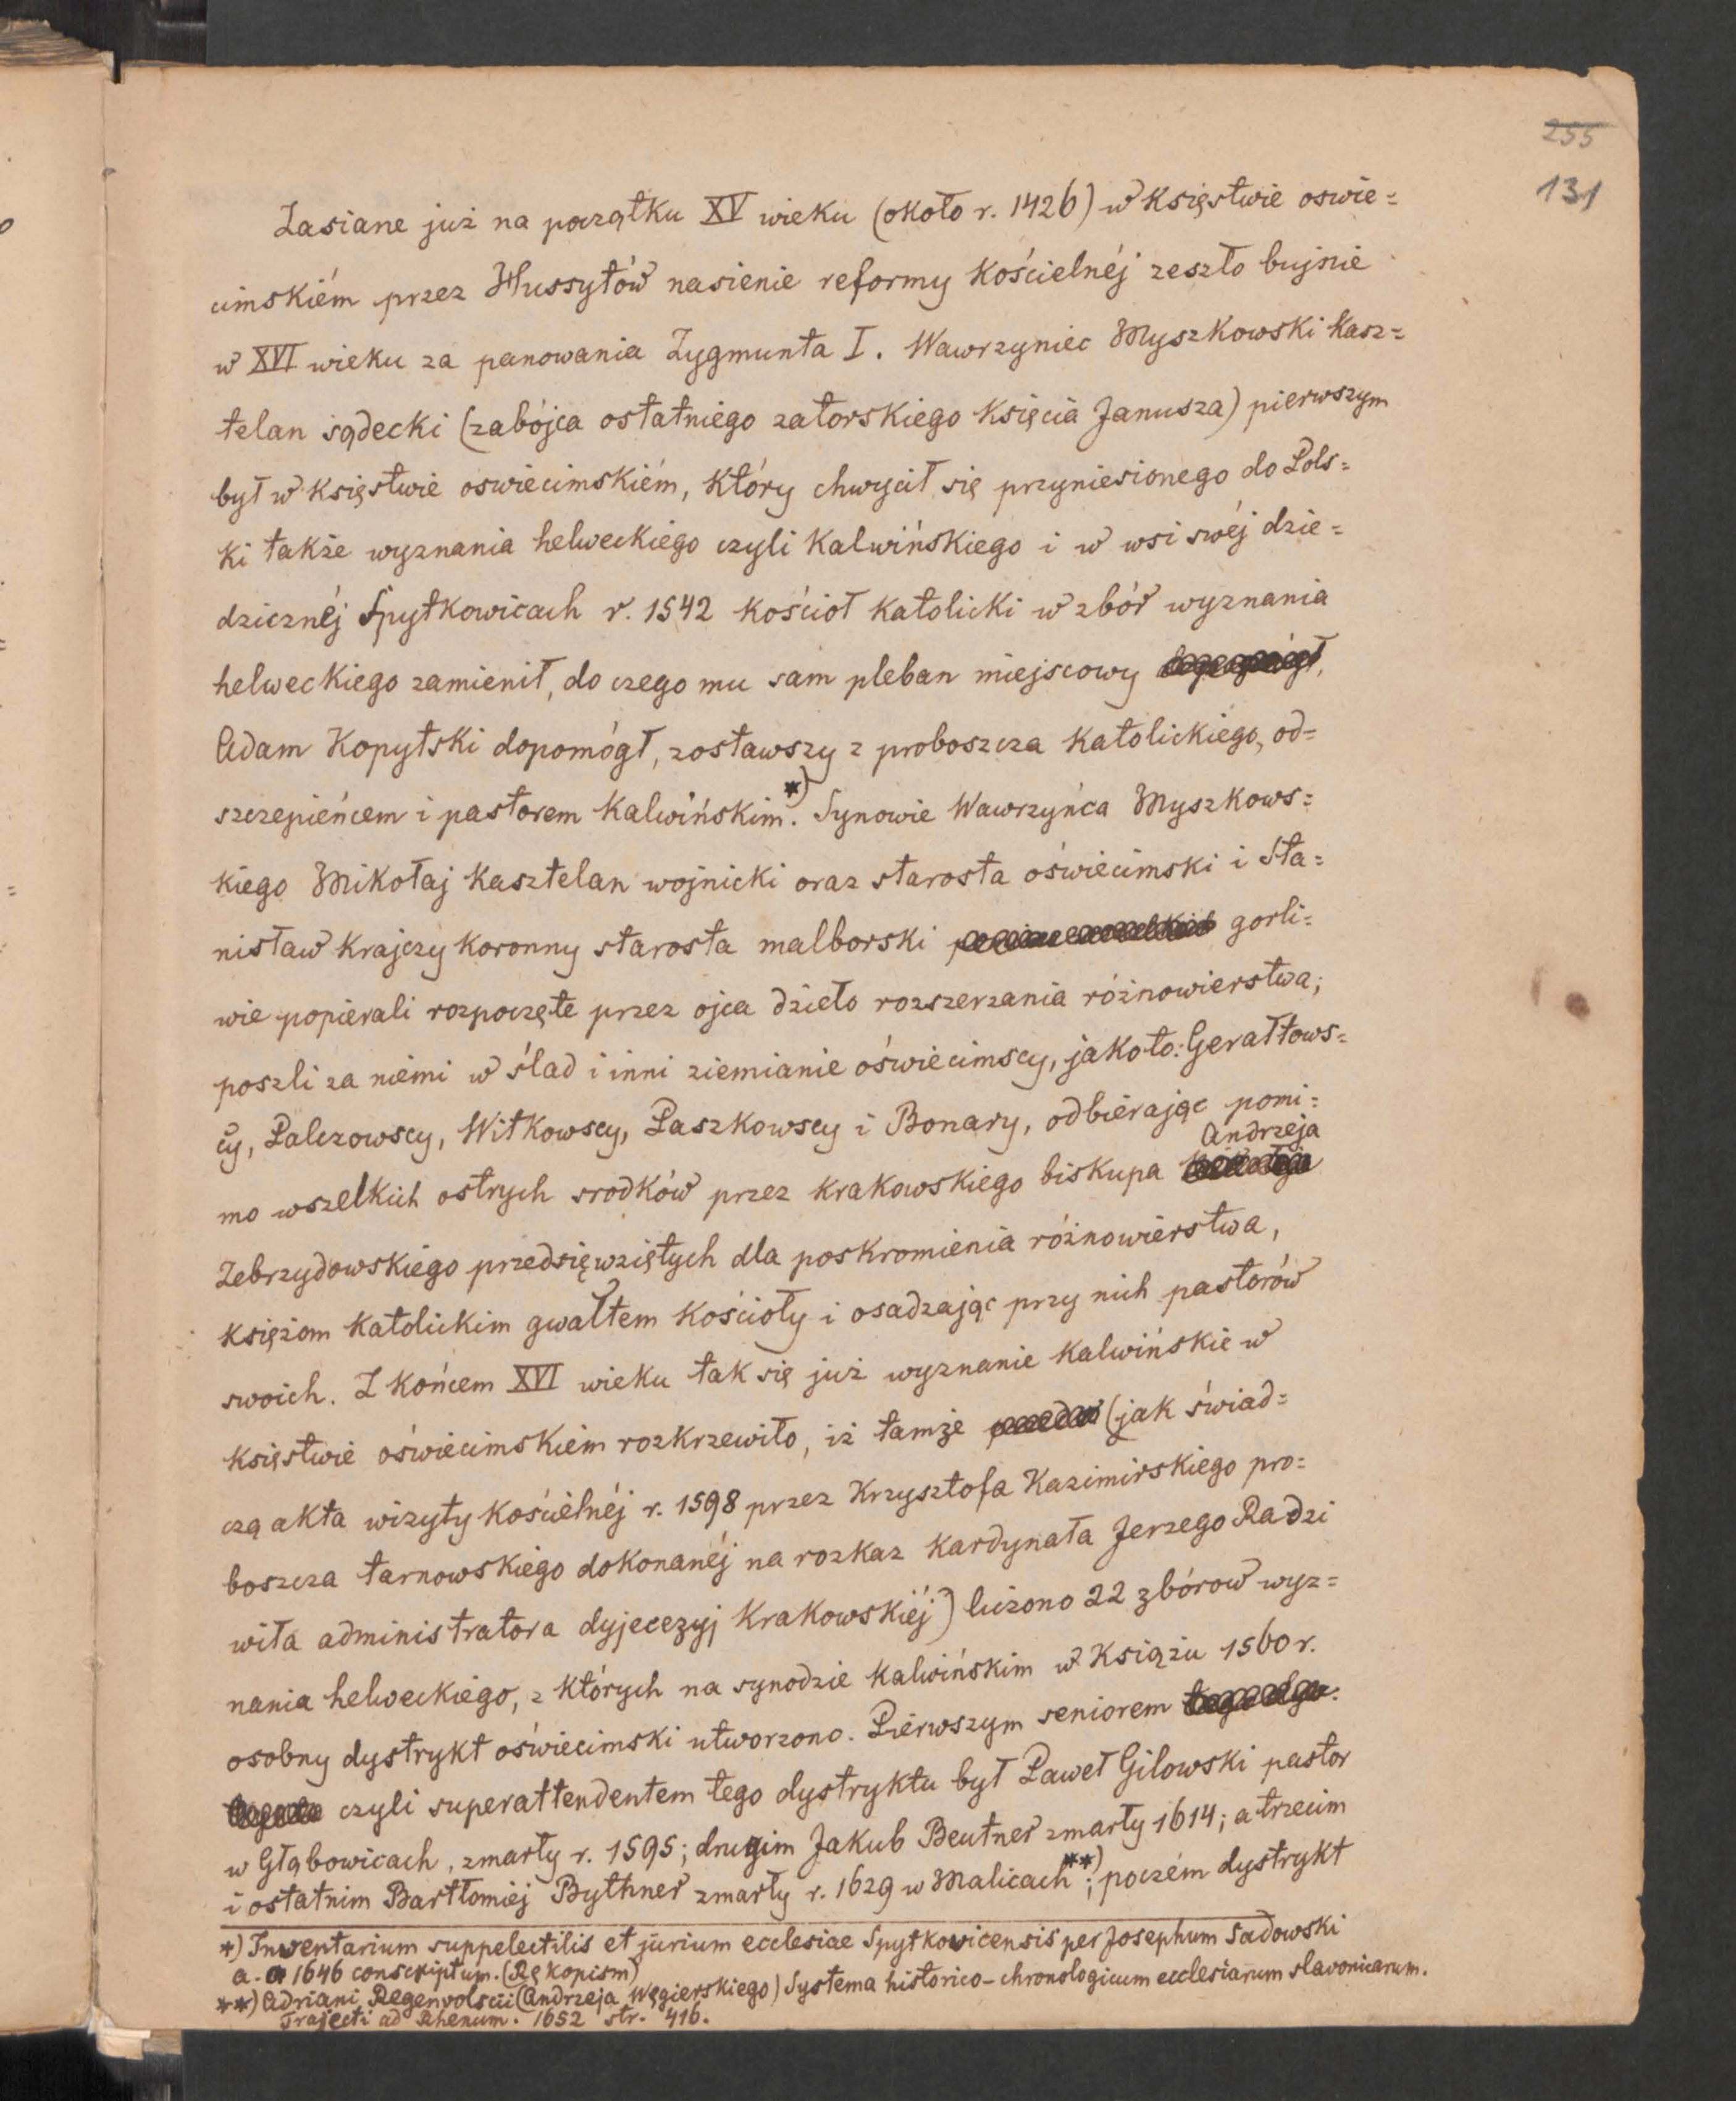 255
131
Zasiane już na początku XV wieku (około r. 1426) w księstwie oswie=
cimskiém przez Hussytów nasienie reformy kościelnéj zeszło bujnie
w XVI wieku za panowania Zygmunta I. Wawrzyniec Myszkowski kasz=
telan sądecki (zabójca ostatniego zatorskiego księcia Janusza) pierwszym
był w księstwie oswiecimskiém, który chwycił się przyniesionego do Pols=
ki także wyznania helweckiego czyli kalwińskiego i w wsi swéj dzie=
dzicznéj Spytkowicach r. 1542 kościoł katolicki w zbór wyznania
helweckiego zamienił, do czego mu sam pleban miejscowy
Adam Kopytski dopomógł, zostawszy z proboszcza katolickiego, od=
szczepieńcem i pastorem kalwińskim.*) Synowie Wawrzyńca Myszkows=
kiego Mikołaj kasztelan wojnicki oraz starosta oświecimski i Sta=
nisław krajczy koronny starosta malborski gorli=
wie popierali rozpoczęte przez ojca dzieło rozszerzania różnowierstwa;
poszli za niemi w ślad i inni ziemianie oświecimscy, jakoto: Gerałtows=
cy, Palczowscy, Witkowscy, Paszkowscy i Bonary, odbiérając pomi=
mo wszelkich ostrych srodków przez krakowskiego biskupa Andrzeja
Zebrzydowskiego przedsięwziętych dla poskromienia różnowierstwa,
księżom katolickim gwałtem kościoły i osadzając przy nich pastorów
swoich. Z końcem XVI wieku tak się już wyznanie kalwińskie w
księstwie oświecimskiem rozkrzewiło, iż tamże (jak świad=
czą akta wizyty kościelnéj r. 1598 przez Krzysztofa Kazimirskiego pro=
boszcza tarnowskiego dokonanéj na rozkaz kardynała Jerzego Radzi
wiła administratora dyjecezyj krakowskiéj) liczono 22 zbórow wyz=
nania helweckiego, z których na synodzie kalwińskim w Książu 1560 r.
osobny dystrykt oświecimski utworzono. Piérwszym seniorem
czyli superattendentem tego dystryktu był Paweł Gilowski pastor
w Głąbowicach, zmarły r. 1595; drugim Jakub Beutner zmarły 1614; a trzecim
i ostatnim Bartłomiéj Bythner zmarły r. 1629 w Malicach**); poczém dystrykt
*) Inwentarium suppelectilis et jurium ecclesiae Spytkovicensis per Josephum Sadowski
a. 1646 conscriptum. (Rękopism)
**) Adriani Regenvolscii (Andrzeja Węgierskiego) Systema historico-chronologicum ecclesiarum slavonicarum.
Trajecti ad Rhenum. 1652 str. 416.